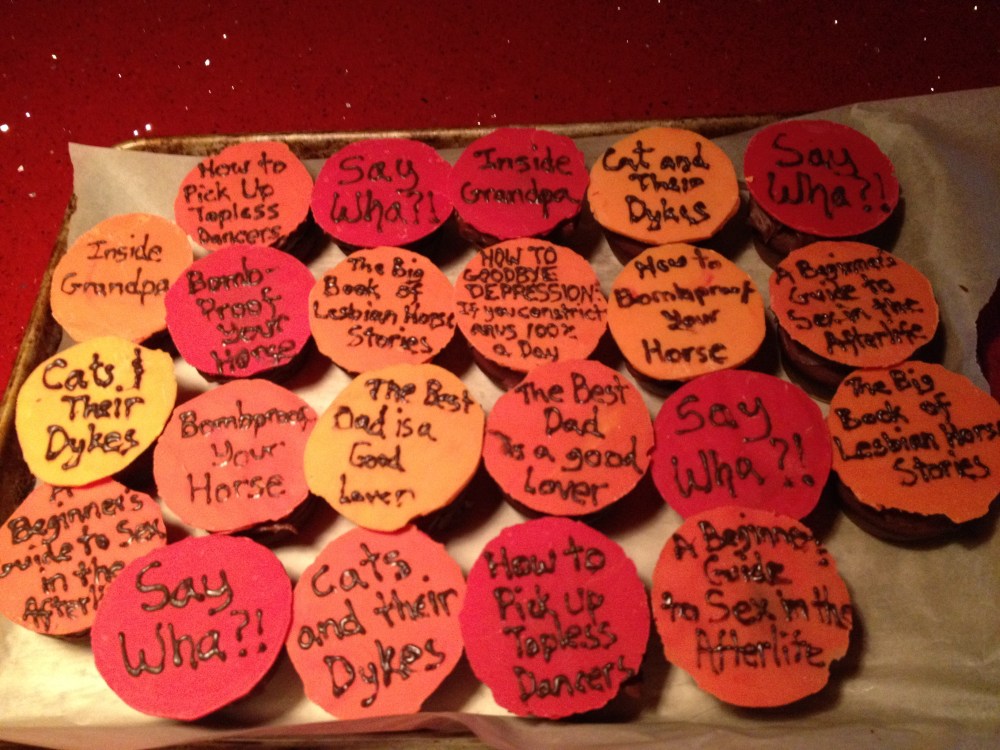 How to
Pick Up
Topless
Dancers
Say
Wha?!
Inside
Grandpa
Cat and
Their
Dykes
Say
Wha?!
Inside
Grandpa
Bomb-
Proof
Your
Horse
The Big
Book of
Lesbian Horse
Stories
HOW TO
GOODBYE
DEPRESSION:
If you constrict
anus 100%
a Day
How to
Bombproof
Your
Horse
A Beginner's
Guide to
Sex in the
Afterlife
Cats
Their
Dykes
Bombproof
Your
Horse
The Best
Dad is a
Good
Lover
The Best
Dad
is a good
Lover
Say
Wha?!
The Big
Book of
Lesbian Horse
Stories
A
Beginner's
Guide to Sex
in the
Afterlife
Say
Wha?!
Cats
and their
Dykes
How to
Pick Up
Topless
Dancers
A Beginner's
Guide
to Sex in the
Afterlife